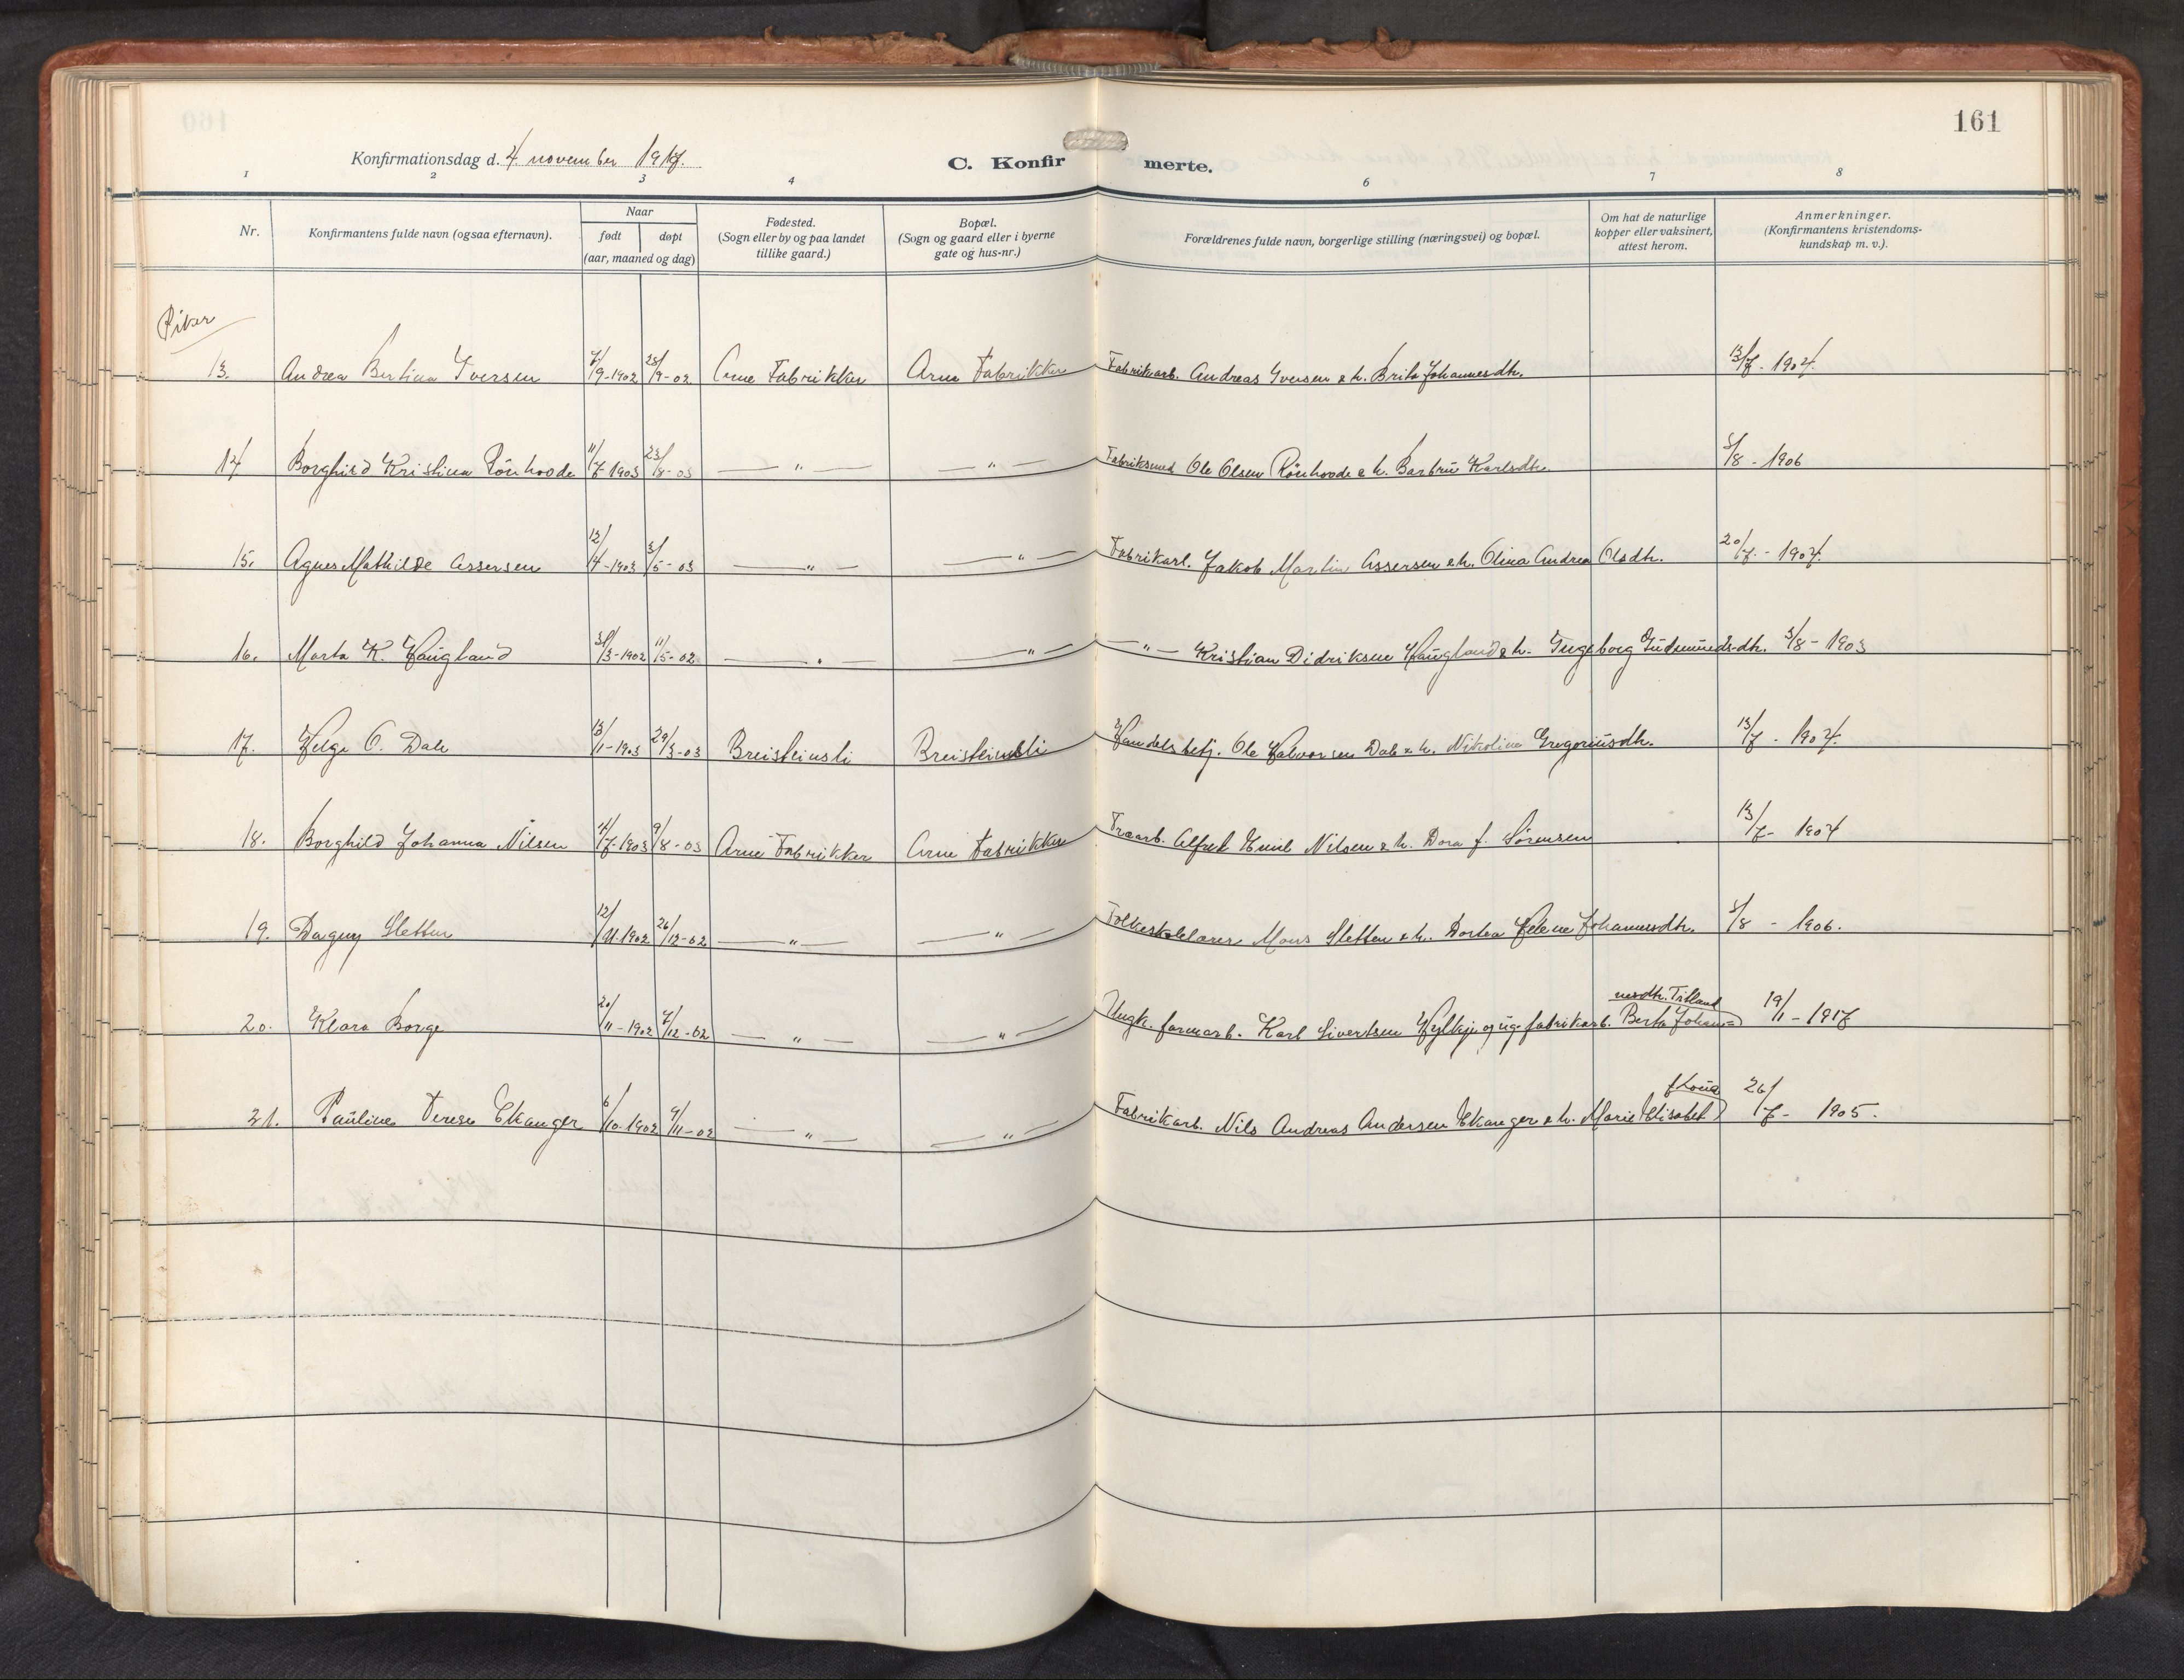 161
Konfirmationsdag d. 4 november 1917.
C. Konfir merte.
1 2 3 4 6 7 8
Nr.
Konfirmantens fulde navn (ogsaa efternavn).
Naar
født døpt
(aar, maaned og dag)
Fødested.
(Sogn eller by og paa landet
tillike gaard.)
Bopæl.
(Sogn og gaard eller i byerne
gate og hus-nr.)
Forældrenes fulde navn, borgerlige stilling (næringsvei) og bopæl.
Om hat de naturlige
kopper eller vaksinert,
attest herom.
Anmerkninger.
(Konfirmantens kristendoms-
kundskap m. v.).
Piker
13. Andrea Bertina Iversen 7/9-1902 28/9-02 Arne Fabrikker Arne Fabrikker Fabrikarb. Andreas Iversen & h. Brita Johannesdtr. 13/7 - 1904.
14 Borghild Kristina Rönhovde 11/7-1903 23/8-03 — " — — " — Fabriksmed Ole Olsen Rönhovde & h. Barbrü Karlsdtr. 5/8 - 1906
15. Agnes Mathilde Assersen 12/4-1903 3/5-03 — " — — " — Fabrikarb. Jakob Martin Assersen & h. Olina Andrea Olsdtr. 20/7 - 1904.
16. Marta K. Haügland 31/3-1902 11/5-02 — " — — " — — " — Kristian Didriksen Haügland & h. Ingeborg Güdmündsdtr. 3/8 - 1903
17. Helga O. Dale 13/1-1903 29/3-03 Breisteinsli Breisteinsli Handelsbetj. Ole Halvorsen Dale & h. Nikolina Gregoriüsdtr. 13/7 - 1904.
18. Borghild Johanna Nilsen 4/7-1903 9/8-03 Arne Fabrikker Arne Fabrikker Træarb. Alfred Emil Nilsen & h. Dora f. Sørensen 13/7 - 1904
19. Dagny Sletten 12/11-1902 26/12-02 — " — — " — Folkeskolelærer Mons Sletten & h. Dortea Helene Johannesdtr. 5/8 - 1906.
nesdtr. Titland
20. Klara Borge 20/11-1902 7/12-02 — " — — " — Ungk. farmarb. Karl Sivertsen Hylkje og ug. fabrikarb. Berta Johan= 19/1 - 1917
21. Pauline Terese Ekanger 6/10-1902 9/11-02 — " — — " — Fabrikarb. Nils Andreas Andersen Ekanger & h. Marie Elisabet 26/7 - 1905.